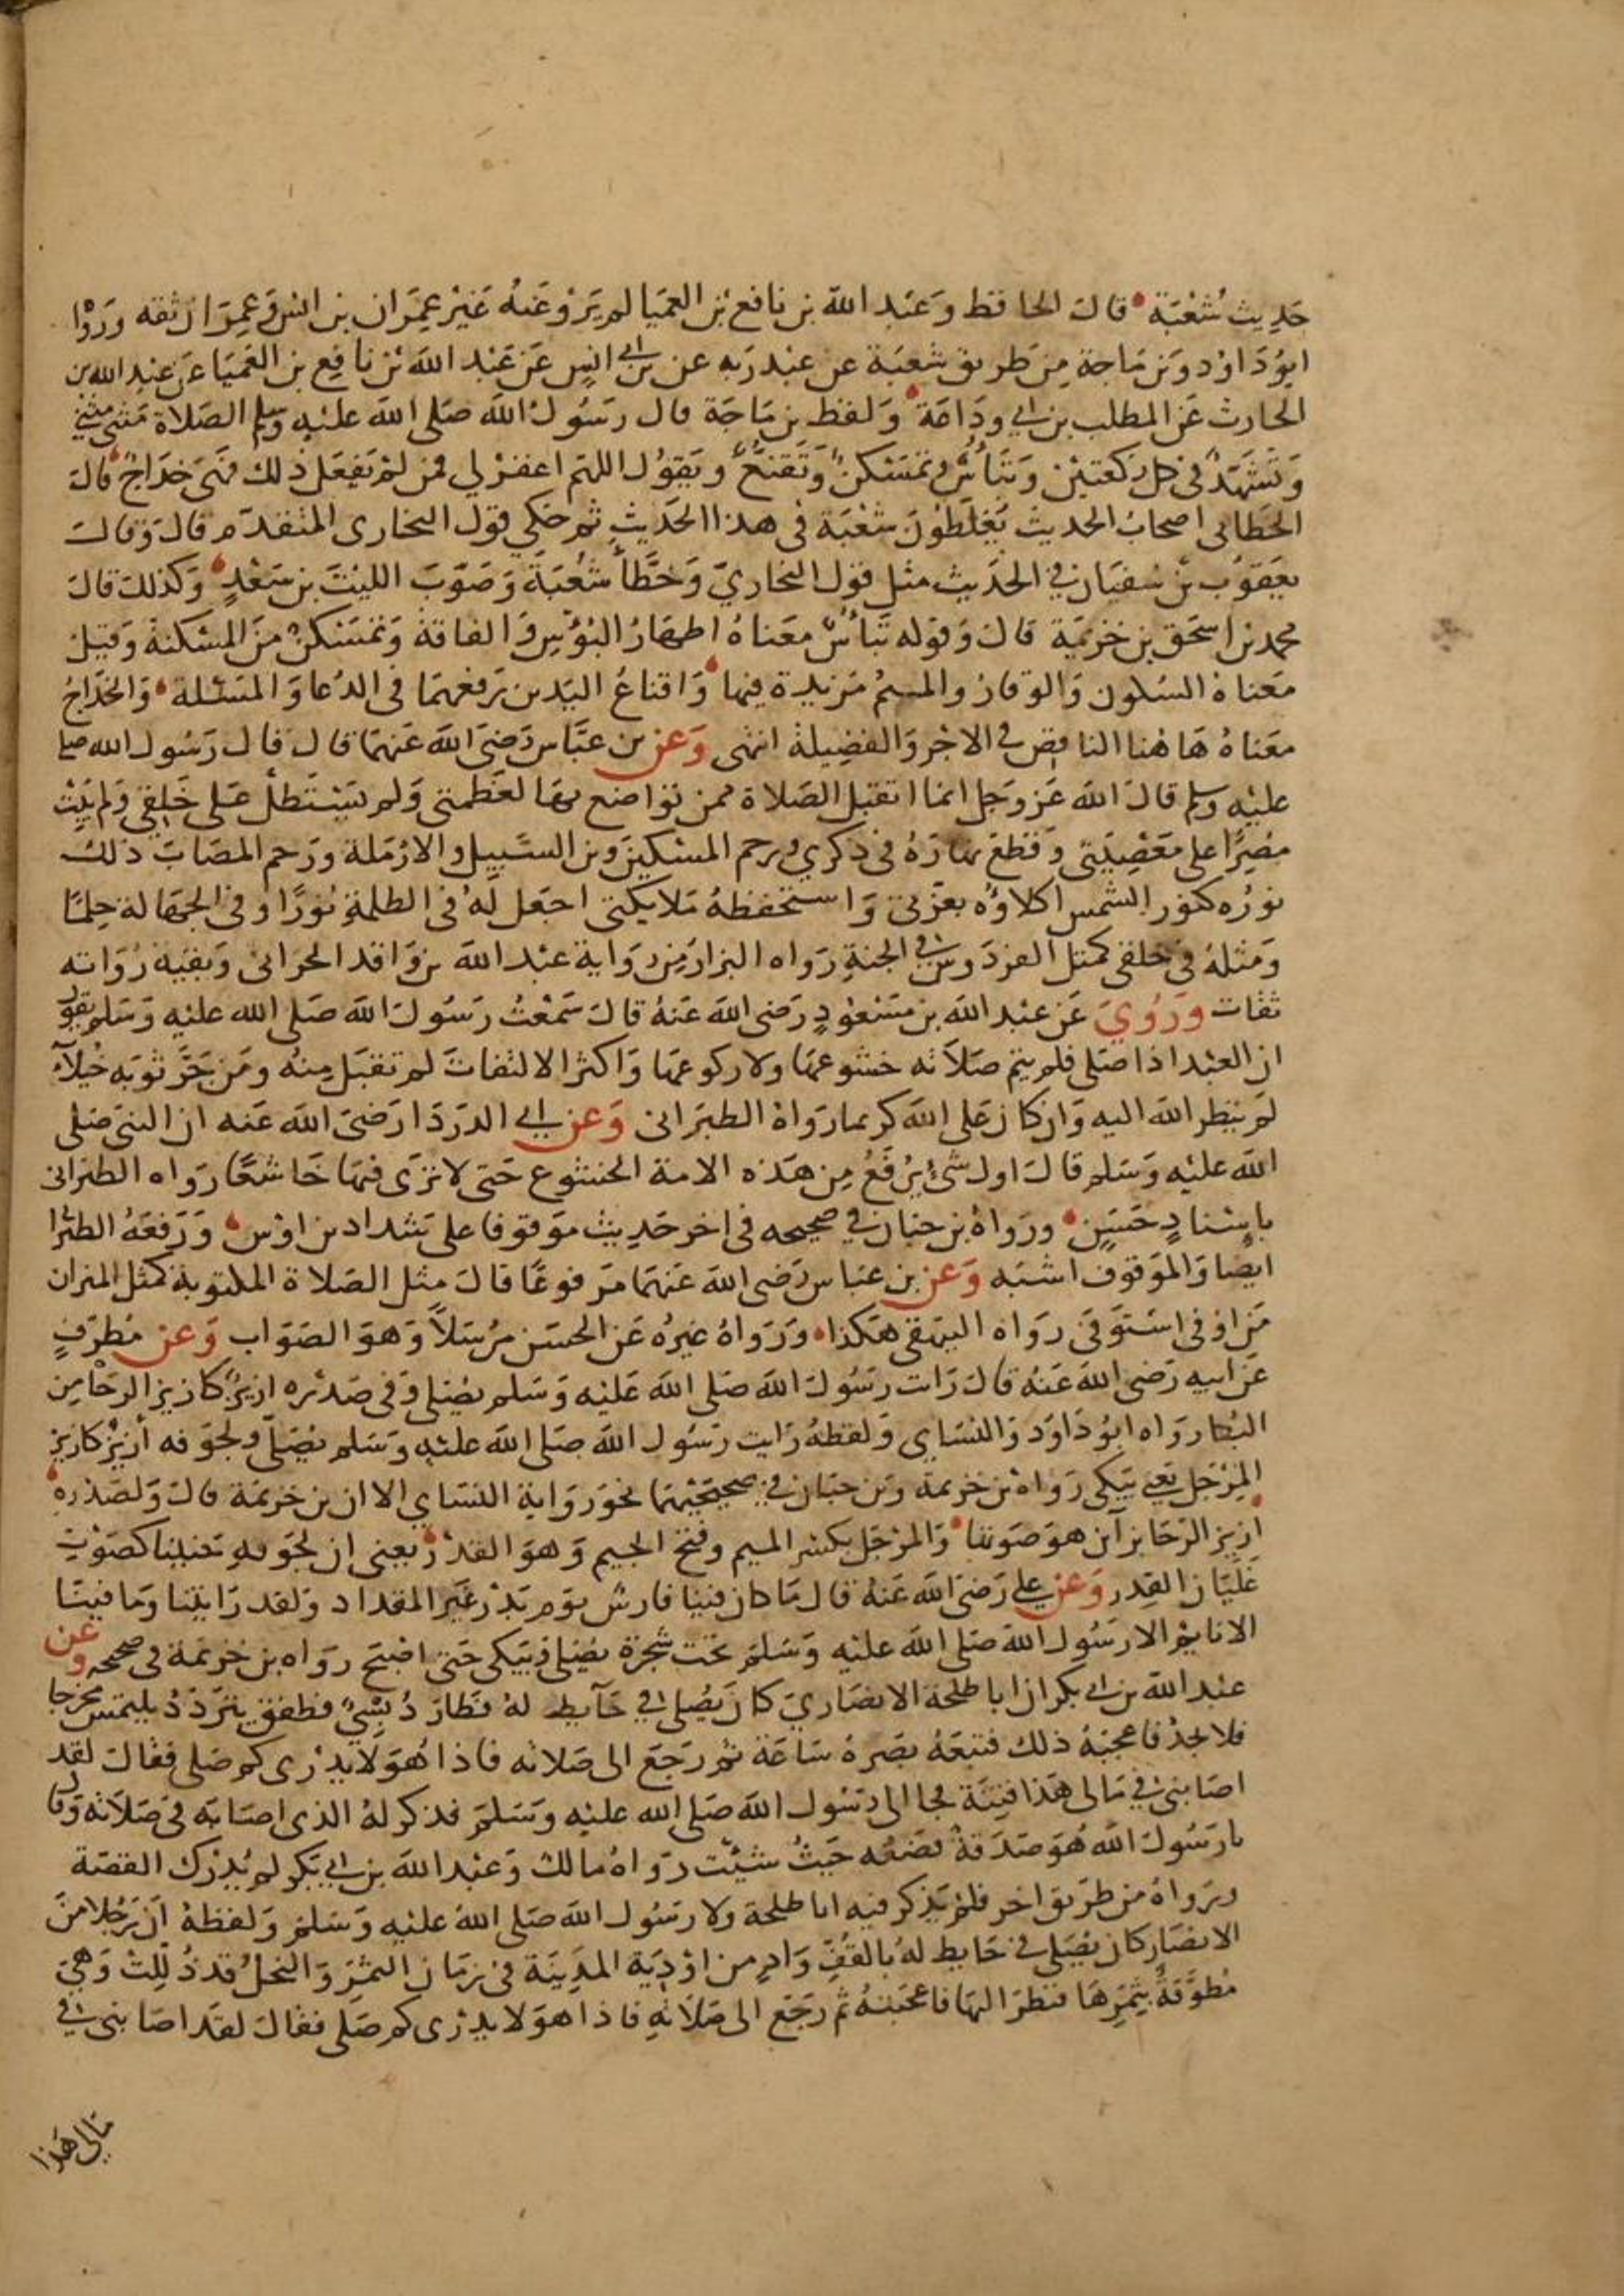 حَدِيث شُعْبَة قالَ الحافظ وَعَبْد الله بن نافع بن العميَا لم يَرْو عَنهُ غَيْر عِمَران بن انس وعِمَران ثقه وَرَوْا
ابوُ دَاوُد وَبن مَاجة مِن طريق شعبَة عن عبْد رَبه عن بن ابي انِس عَن عَبْد الله بن نافِع بن العَميَا عَن عَبد الله بن
الحارث عَن المطلب بن ابي ودَاعَة وَلفظ بن مَاجَة قال رَسُول الله صَلى الله عليْهِ وسلم الصَلاة مَثنى مثنى
وَتَشَهدٌ في كل ركعتيْن وَتَبَأسٌ وتمسْكنٌ وَتَقنعٌ ويَقوُل اللهم اغفرْ لي فمن لمْ يَفعَل ذلك فهىَ خدَاجٌ قالَ
الخطابى اصحابُ الحديث يَغلّطوُنَ شعْبَة فى هذا الحَديثِ ثم حَكي قول البخارى المتقدّم قالَ وَقالَ
يعَقوُب بنْ سُفيَان في الحَديث مثل قوْل البخاريّ وَخطَّأ شُعْبَةَ وَصَوّبَ الليْثَ بن سَعْدٍ وَكذلك قالَ
محمد بن اسحَق بن خزيمَة قالَ وَقوله تَبَأسٌ معَناهُ اظهَارُ البُؤسِ وَالفاقة وَتمسْكنٌ منَ المسْكنة وَقيلَ
معَناهُ السُكون وَالوقارُ والميمُ مَزيدة فيها وَاقناعُ اليَدين رَفعهمَا فى الدُعا وَالمسْئلة وَالخدَاجُ
معَناهُ هَاهُنا الناقص في الاجْر وَالفضِيلة انتهى وَعن بن عبَّاس رَضىَ الله عَنهمَا قال قال رَسُول الله صلى
عليْهِ وسلم قالَ الله عَز وَجل انمَا اتقبّل الصَلاة ممن تواضع بهَا لعَظمتى وَلم يَسْتَطلْ عَلى خَلقي وَلم يَبِتْ
مُصِرًا على مَعْصِيَتى وَقطعَ نهَارَهُ فى ذكري ورحم المسْكينَ وبن السَّبِيل والارْمَلة ورَحم المصَابَ ذلك
نورُه كنور الشمس اكلاؤه بعزّتى وَاستحفظهُ مَلايكتى اجعَل لهُ فى الظلمةِ نُورًا وفى الجهَالة حِلمًا
وَمَثلهُ في خلقى كمثل الفردَوس في الجنةِ رَواه البزار مِن رواية عبْد الله بن وَاقد الحرانى وَبقيّة رُوَاته
ثقات وَرُوِيَ عَن عبْد الله بن مَسْعوُدٍ رَضى الله عَنهُ قالَ سَمعْتُ رَسُولَ الله صَلى الله عليْه وَسَلم يقول
ان العبْد اذا صَلى فلم يتم صَلاَته خشوعهَا ولا ركوعهَا وَاكثرَ الالتفاتَ لم تقبَل مِنهُ ومَن جَرَّ ثوبَه خُيَلاَءً
لمْ ينظر الله اليه وَان كانَ عَلى الله كريما رَواهُ الطبَرانى وَعن ابي الدرْدَا رَضىَ الله عَنه ان النبىَ صَلى
الله عليْهِ وَسَلم قالَ اول شَىْ يرُفعُ مِن هَذه الامة الخشوع حَتى لا ترَى فيهَا خَاشعًا رَواه الطبرانى
باِسْنادٍ حَسَنٍ ورَواهُ بن حبان في صحيحه فى اخر حَديث موقوفا على شداد بن اوْس وَرَفعَهُ الطبرا
ايضا وَالموَقوف اشبَه وَعن بن عبَاس رَضى الله عَنهمَا مَرفوعًا قالَ مثل الصَلاة المكتوبة كمثل الميزان
مَن اوْفى اسْتَوْفَى رَواه البيهقى هكذا وَرَواهُ غيرُه عَن الحسَن مرُسَلاً وَهوَ الصَوَاب وَعن مُطرّفٍ
عَن ابيه رَضى الله عَنهُ قالَ رَايت رسُولَ الله صَلى الله عَليْه وَسَلم يصَلى وَفى صَدْره ازيزٌ كازيز الرحَا مِن
البُكا رَوَاه ابوُ دَاوَد وَالنسَاي وَلفظهُ رَايت رَسُول الله صَلى الله عليْهِ وَسَلم يُصَلّي ولجوفه أزيْزٌ كازيز
المِرْجَل يَعني يَبكى رَواهُ بن خزيمة وَبن حبَان في صحيحيْهمَا نحوَ رَواية النسَاي الا ان بن خزيمة قالَ وَلصَدْرهِ
ازيز الرحَا بزاين هوَ صَوتها وَالمرْجَل بكسْر الميم وفتح الجيم وَهوَ القدْر يعنى ان لجوَفهِ غليَانا كصَوْتِ
غَلَيَان القِدر وَعن على رَضىَ الله عَنهُ قالَ مَا كان فينَا فارسٌ يوَم بَدْر غيَر المقداد وَلقد رَايتنا وَما فينَا
الا نايم الا رَسُول الله صَلى الله عليْه وَسَلمَ تحت شجرة يُصَلى ويَبكى حَتى اصْبَح رَواه بن خزيمة فى صحيحه وعن
عبْد الله بن ابي بكر ان ابا طلحة الانصَاريّ كان يَصُلى في حَآيط لهُ فطارَ دُبْسِيٌ فطفق يترَدّدُ يلتمسُ مخرجا
فلا يجدُ فاعجبَهُ ذلك فتبعَهُ بصَرهُ سَاعَة ثم رَجَعَ الى صَلاته فاذا هُوَ لا يدْرى كم صَلى فقالَ لقد
اصَابنىْ في مَالى هَذا فِتنَة فجا الى رَسُول الله صَلى الله عليْه وَسَلمَ فذكر لهُ الذى اصَابَه فى صَلاَته وَقال
يا رَسُولَ الله هُوَ صَدَقةٌ فضَعْه حَيثُ شيئت رَواهُ مالك وَعبْد الله بن ابي بَكر لم يُدْرك القصَة
ورَواهُ من طريق اخر فلمْ يَذكر فيه ابا طلحة ولا رَسُول الله صَلى اللهُ عليْه وَسَلمَ وَلفظهُ انَ رَجُلا منَ
الانصَار كان يُصَلى في حَايط لهُ بالقفّ وَادٍ من اوْدِيَة المدِينَة فى زمَان الثمَر وَالنخلُ قد ذُلِلتْ وَهيَ
مُطوَّقةٌ بِثمَرِهَا فنظرَ اليهَا فاعجَبَتهُ ثم رَجَع الى صَلاَتهِ فاذا هوَ لا يدْرى كم صَلى فقالَ لقد اصَابنى في
مَالى هَذا